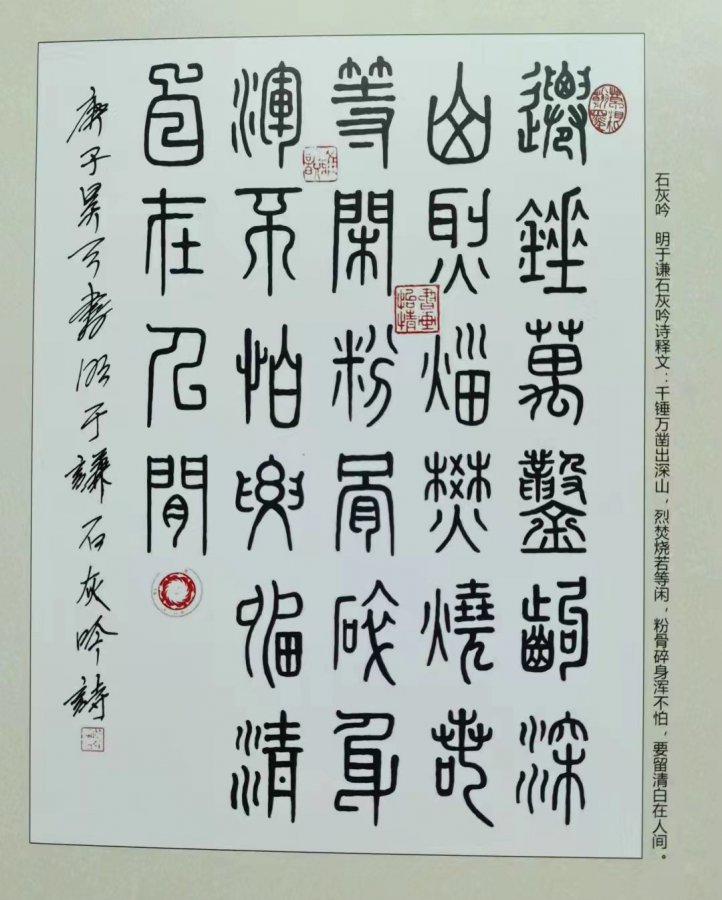 石灰吟 明于谦石灰吟诗释文：千锤万凿出深山，烈焚烧若等闲，粉骨碎身浑不怕，要留清白在人间。
遷錘萬鑿齣深
山烈焰焚燒若
等閑粉骨碎身
渾不怕要留清
白在人間
庚子書明于謙石灰吟詩
書画怡情